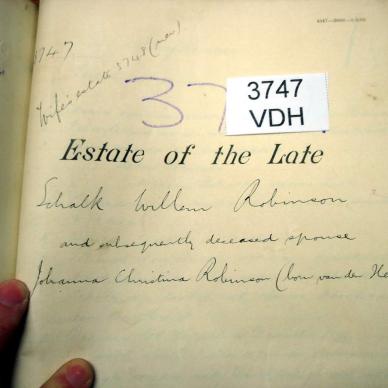 3747
Wife's estate 3748 (new)
37
3747
VDH
Estate of the Late
Schalk Willem Robinson
and subsequently deceased spouse
Johanna Christina Robinson (born van der He